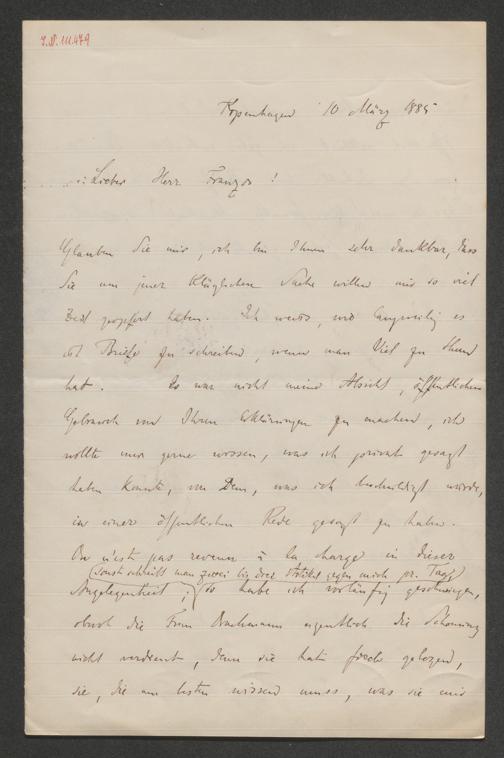 I.N. 111.479
Kopenhagen 10 März 1885
Lieber Herr Franzos!
Glauben Sie mir, ich bin Ihnen sehr dankbar, dass
Sie um jener kläglichen Sache willen mir so viel
Zeit geopfert haben. Ich weiss, wie langweilig es
ist Briefe zu schreiben, wenn man Viel zu thun
hat. Es war nicht meine Absicht, öffentlichen
Gebrauch von Ihren Erklärungen zu machen, ich
wollte nur gerne wissen, was ich privat gesagt
haben konnte, von Dem, was ich beschuldigt würde,
in einer öffentlichen Rede gesagt zu haben.
On n'est pas revenu à la charge in dieser
(sonst schreibt man zwei bis drei Artikel gegen mich pr. Tag)
Angelegenheit; so habe ich vorläufig geschwiegen,
obwol die Frau eigentlich die Schonung
nicht verdient, denn sie hat gelogen,
sie, die am besten wissen muss, was sie mir